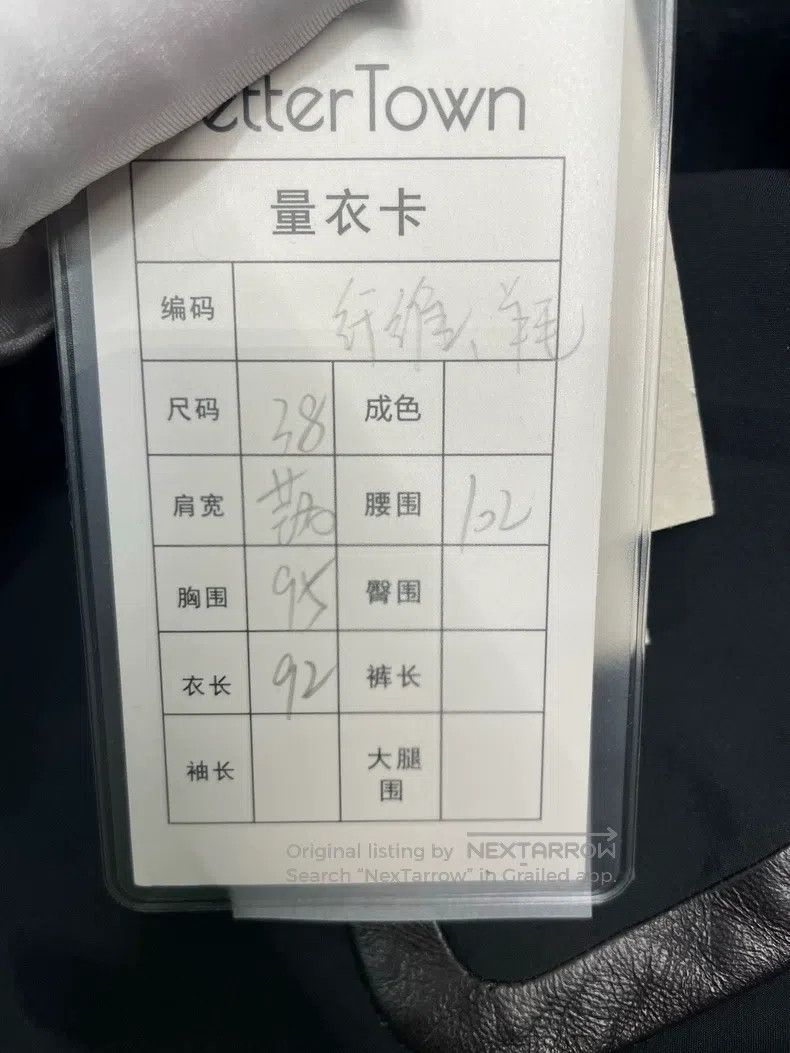 etterTown
量衣卡
编码 纤维、羊毛
尺码 38 成色
肩宽 腰围 102
胸围 95 臀围
衣长 92 裤长
袖长 大腿围
Original listing by NEXTARROW
Search "NexTarrow" in Grailed app.